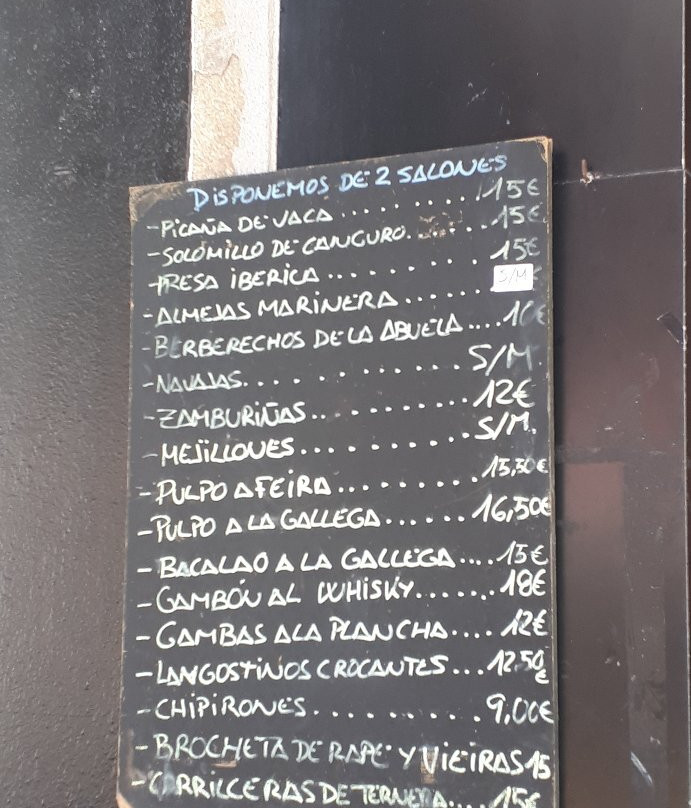 DISPONEMOS DE 2 SALONES
-PICAÑA DE VACA.........15€
-SOLOMILLO DE CANGURO.....15€
-PRESA IBERICA.........15€
-ALMEJAS MARINERA......S/M
-BERBERECHOS DE LA ABUELA....10€
-NAVAJAS............S/M
-ZAMBURIÑAS..........12€
-MEJILLONES..........S/M.
-PULPO A FEIRA.........15,50€
-PULPO A LA GALLEGA......16,50€
-BACALAO A LA GALLEGA....15€
-GAMBÓN AL WHISKY.......18€
-GAMBAS A LA PLANCHA....12€
-LANGOSTINOS CROCANTES...12,50€
-CHIPIRONES.........9,00€
-BROCHETA DE RAPE Y VIEIRAS 15
-CARRILLERAS DE TERNERA....15€